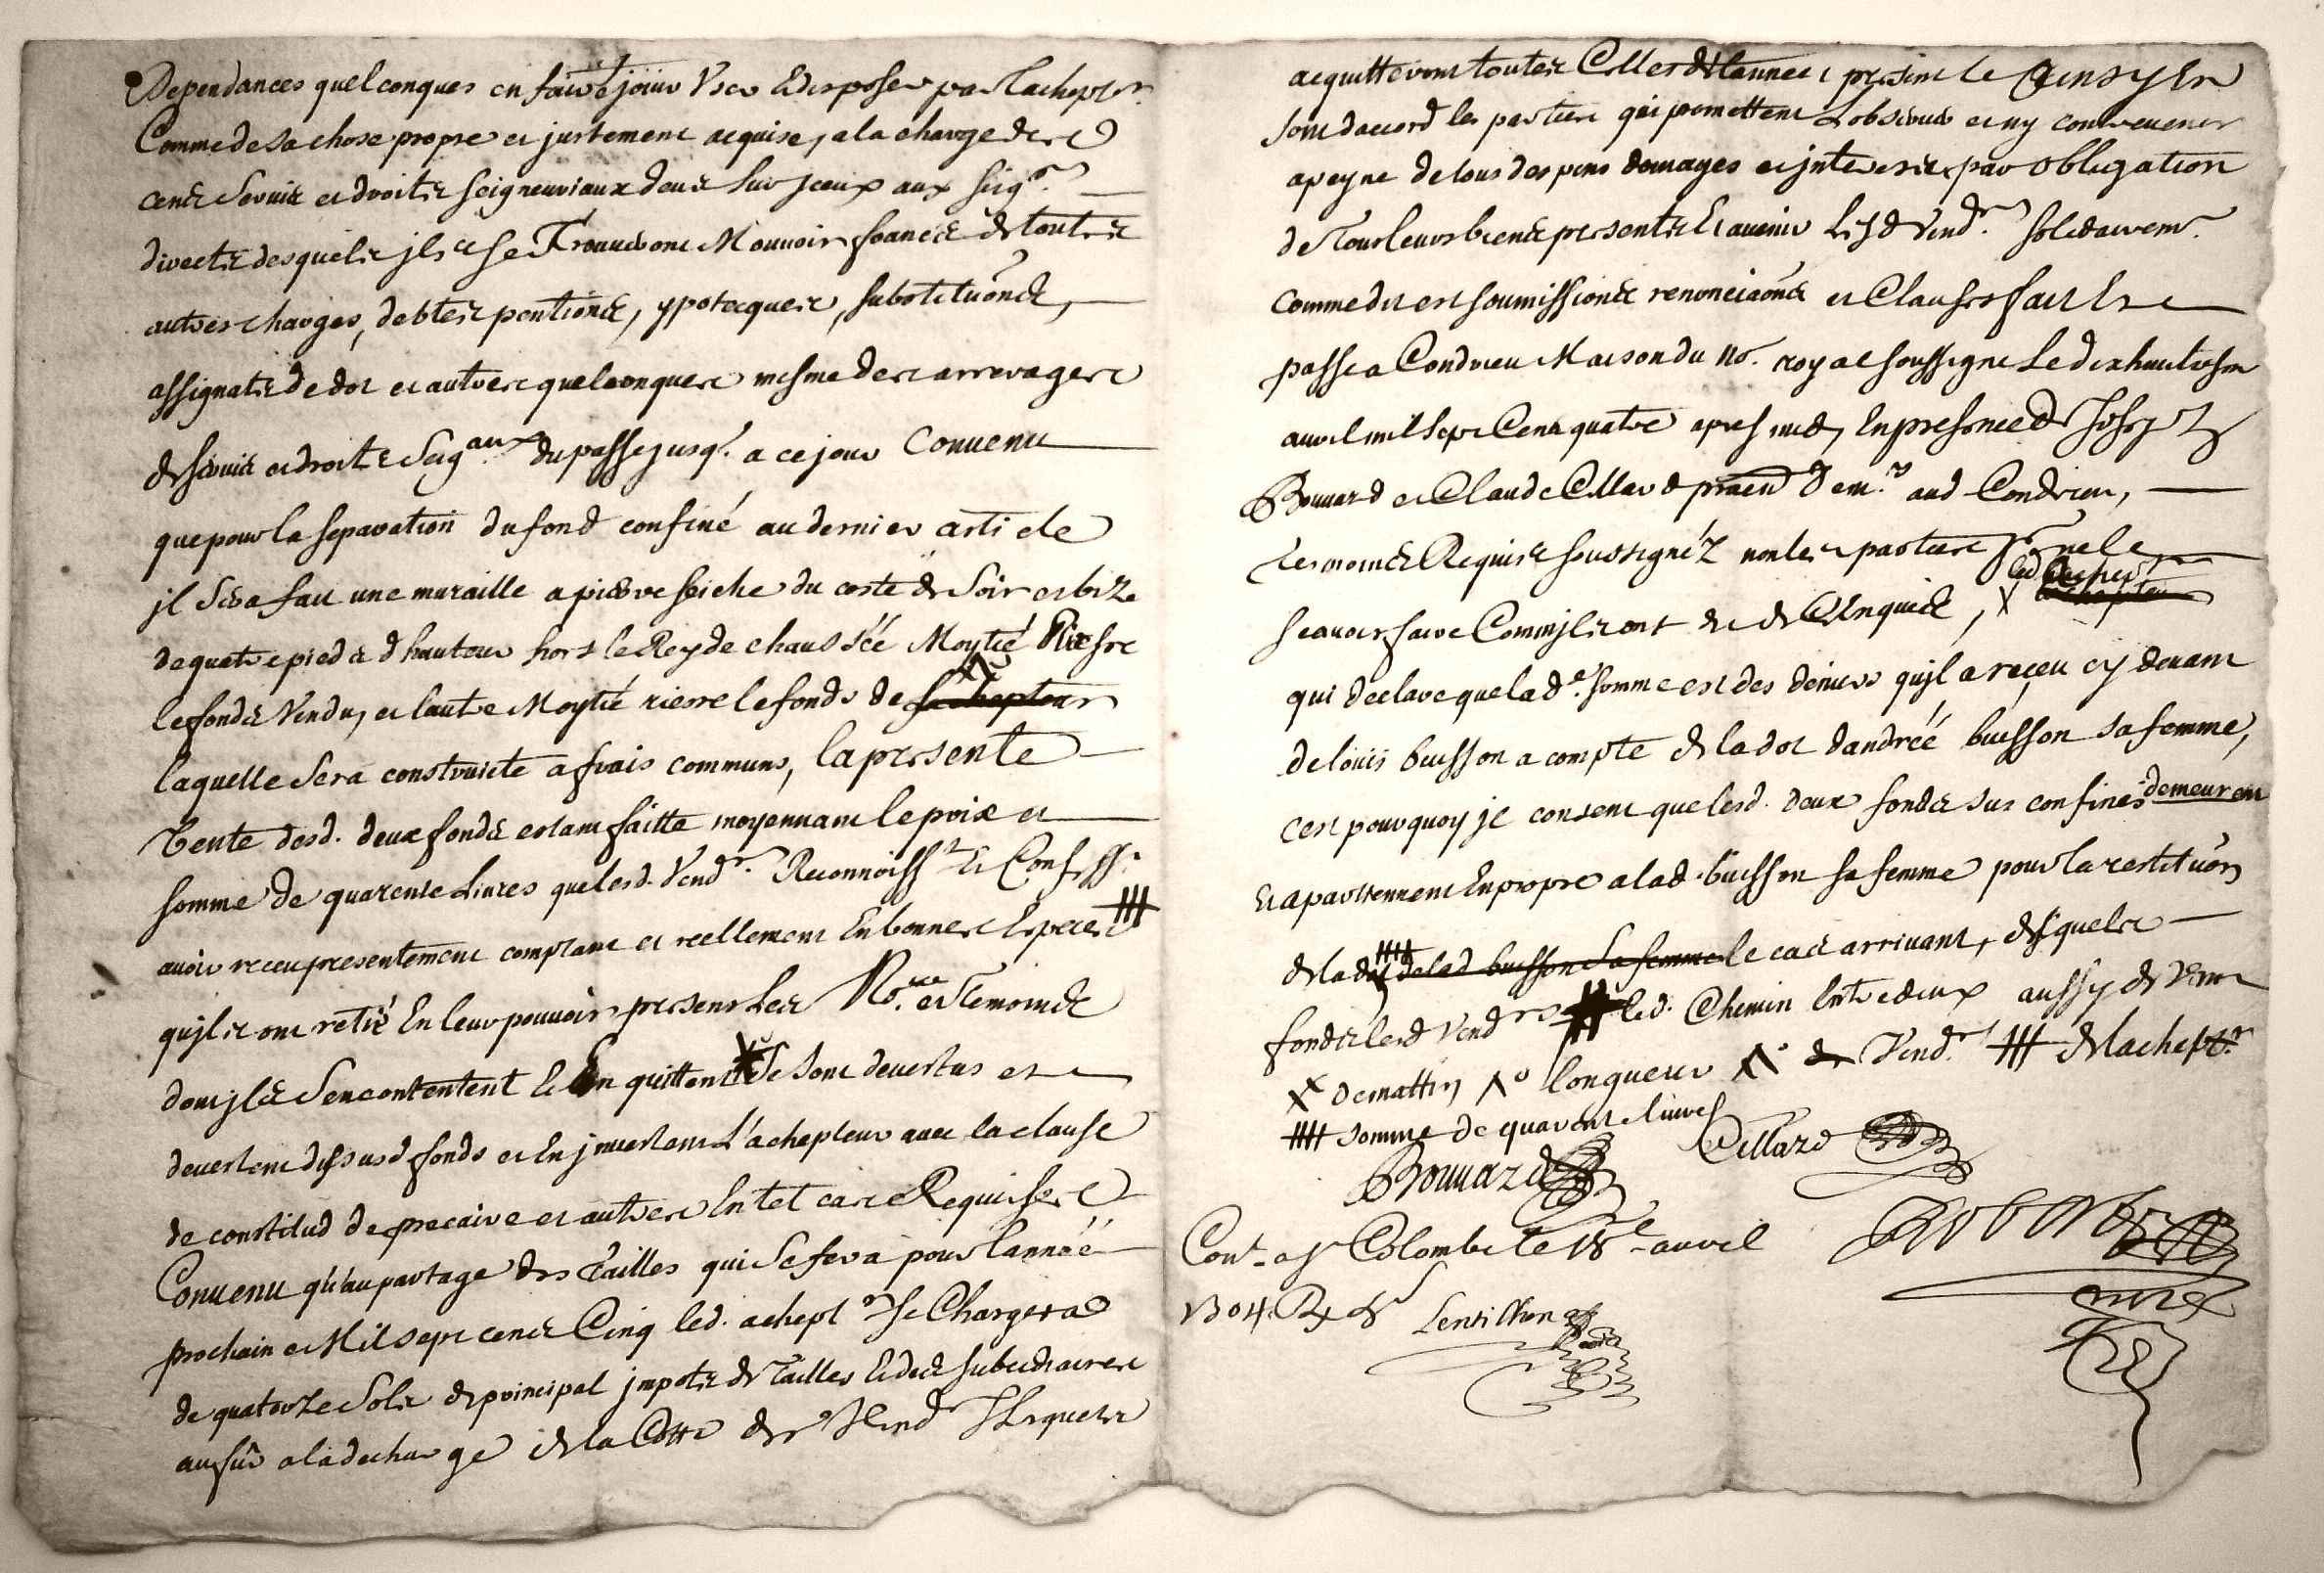 Dependances quelconques en faire jouir User Et disposer par Lachept.r
Comme de sa chose propre et justement acquise, a la charge des
cens Servis et droits seigneuriaux deus sur jceux aux seig.rs
directs desquels jls se Trouueront Mouuoir francs de toutes
autres charges, debtes pentions, ypotecques, substitu͠ons,
assignats de dot et autres quelconques mesme des arrerages
de seruis et droits Seig.aux du passe jusq.s a ce jour Conuenu
que pour la separation du fond confiné au dernier article
jl sera fait une muraille a pierre seiche du costé de Soir et bize
de quatre pieds d hauteur hors le Rey de chaussée Moytié Riere
le fonds Vendu, et lautre Moytié riere le fonds de lachepteur
laquelle Sera construicte a frais communs, la presente
Vente desd. deux fonds estant faitte moyennant le prix et
somme de quarente Liures que lesd. Vend.rs Reconnoiss.t Et Confess.t
auoir receu presentement comptant et reellement En bonnes Especes
qujls ont retiré En leur pouuoir presens Les No.re et Temoins
dont jls Sen contentent Et En quittent Se sont deuestus et
deuestent desd fonds et En jnuestent L'achepteur auec la clause
de constitud de precaire et autres En tel cas Requises
Conuenu qu'au partage des Tailles qui Se fera pour lannéé
prochaine Mil sept cens Cinq led. achept.r Se Chargera
de quatorze Sols de principal jmpots de Tailles Et des subsidiaires
au fûr a la decharge de la Cotte des Vend.rs Lesquels
acquitteront toutes Celles de lannee presente Ainsy En
sont daccord les parties qui promettent Lobseruer et ny contreuenir
a peyne de tous despens domages et jnterests par obligation
de Tous leurs biens presents Et auenir Lesd Vend.rs solidairem.t
comme dit est soumissions renonciaõns et Clauses fait Et
passé a Condrieu Maison du no.re royal soussigné Le dix huitiesme
auril mil Sept Cens quatre apres midy En presence de Joseph
Bouuard et Claude Cillard pratien Dem.rs aud Condrieu,
Temoins Requis soussignéz non les parties pour ne le
led. achept.r
scauoir faire Comm jls ont dit de ce Enquis, X
qui declare que lad.e somme est des deniers qujl a reçeu cy deuant
de loüis buisson a compte de la dot dandréé buisson sa femme,
cest pourquoy jl consent que lesd. deux fonds sus confinés demeurent
Et apartiennent En propre a lad. buisson sa femme pour la restitu͠on
de lad. de lad buisson sa femme le cas arriuant, desquels
fonds lesd Vend.rs led. Chemin Entredeux aussy de Vent
X de mattin longueur de Vend.rs de lachept.r
somme de quarente liures
Bouuard Cillard
Con.le a S.te Colombe le 18.e auril
1704. R
Lentillon